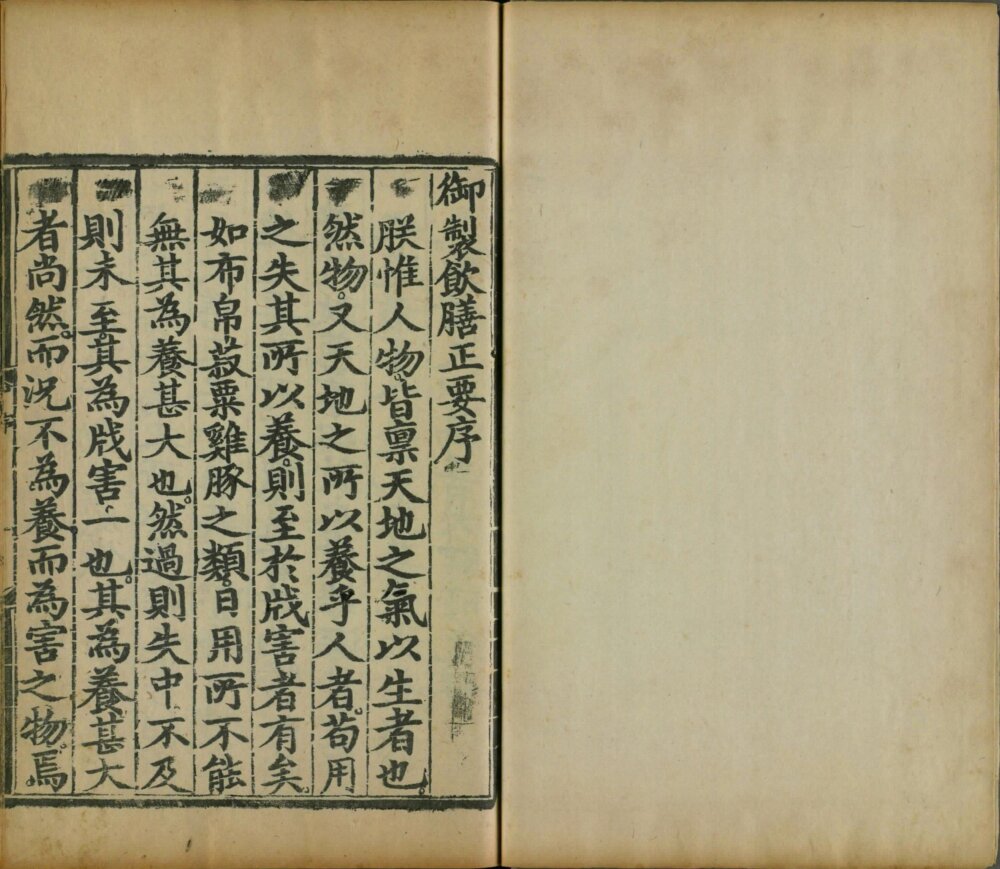 御製飲膳正要序
朕惟人物。皆禀天地之氣以生者也。
然物。又天地之所以養乎人者。苟用
之失其所以養。則至於戕害者有矣
如布帛菽粟雞豚之類。日用所不能
無其為養甚大也。然過則失中不及
則未至其為戕害一也。其為養甚大
者尚然。而况不為養而為害之物。焉